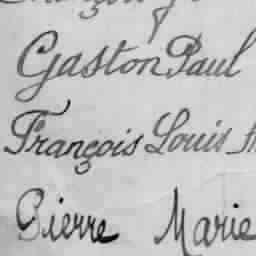 Gaston Paul
François Louis
Pierre Marie